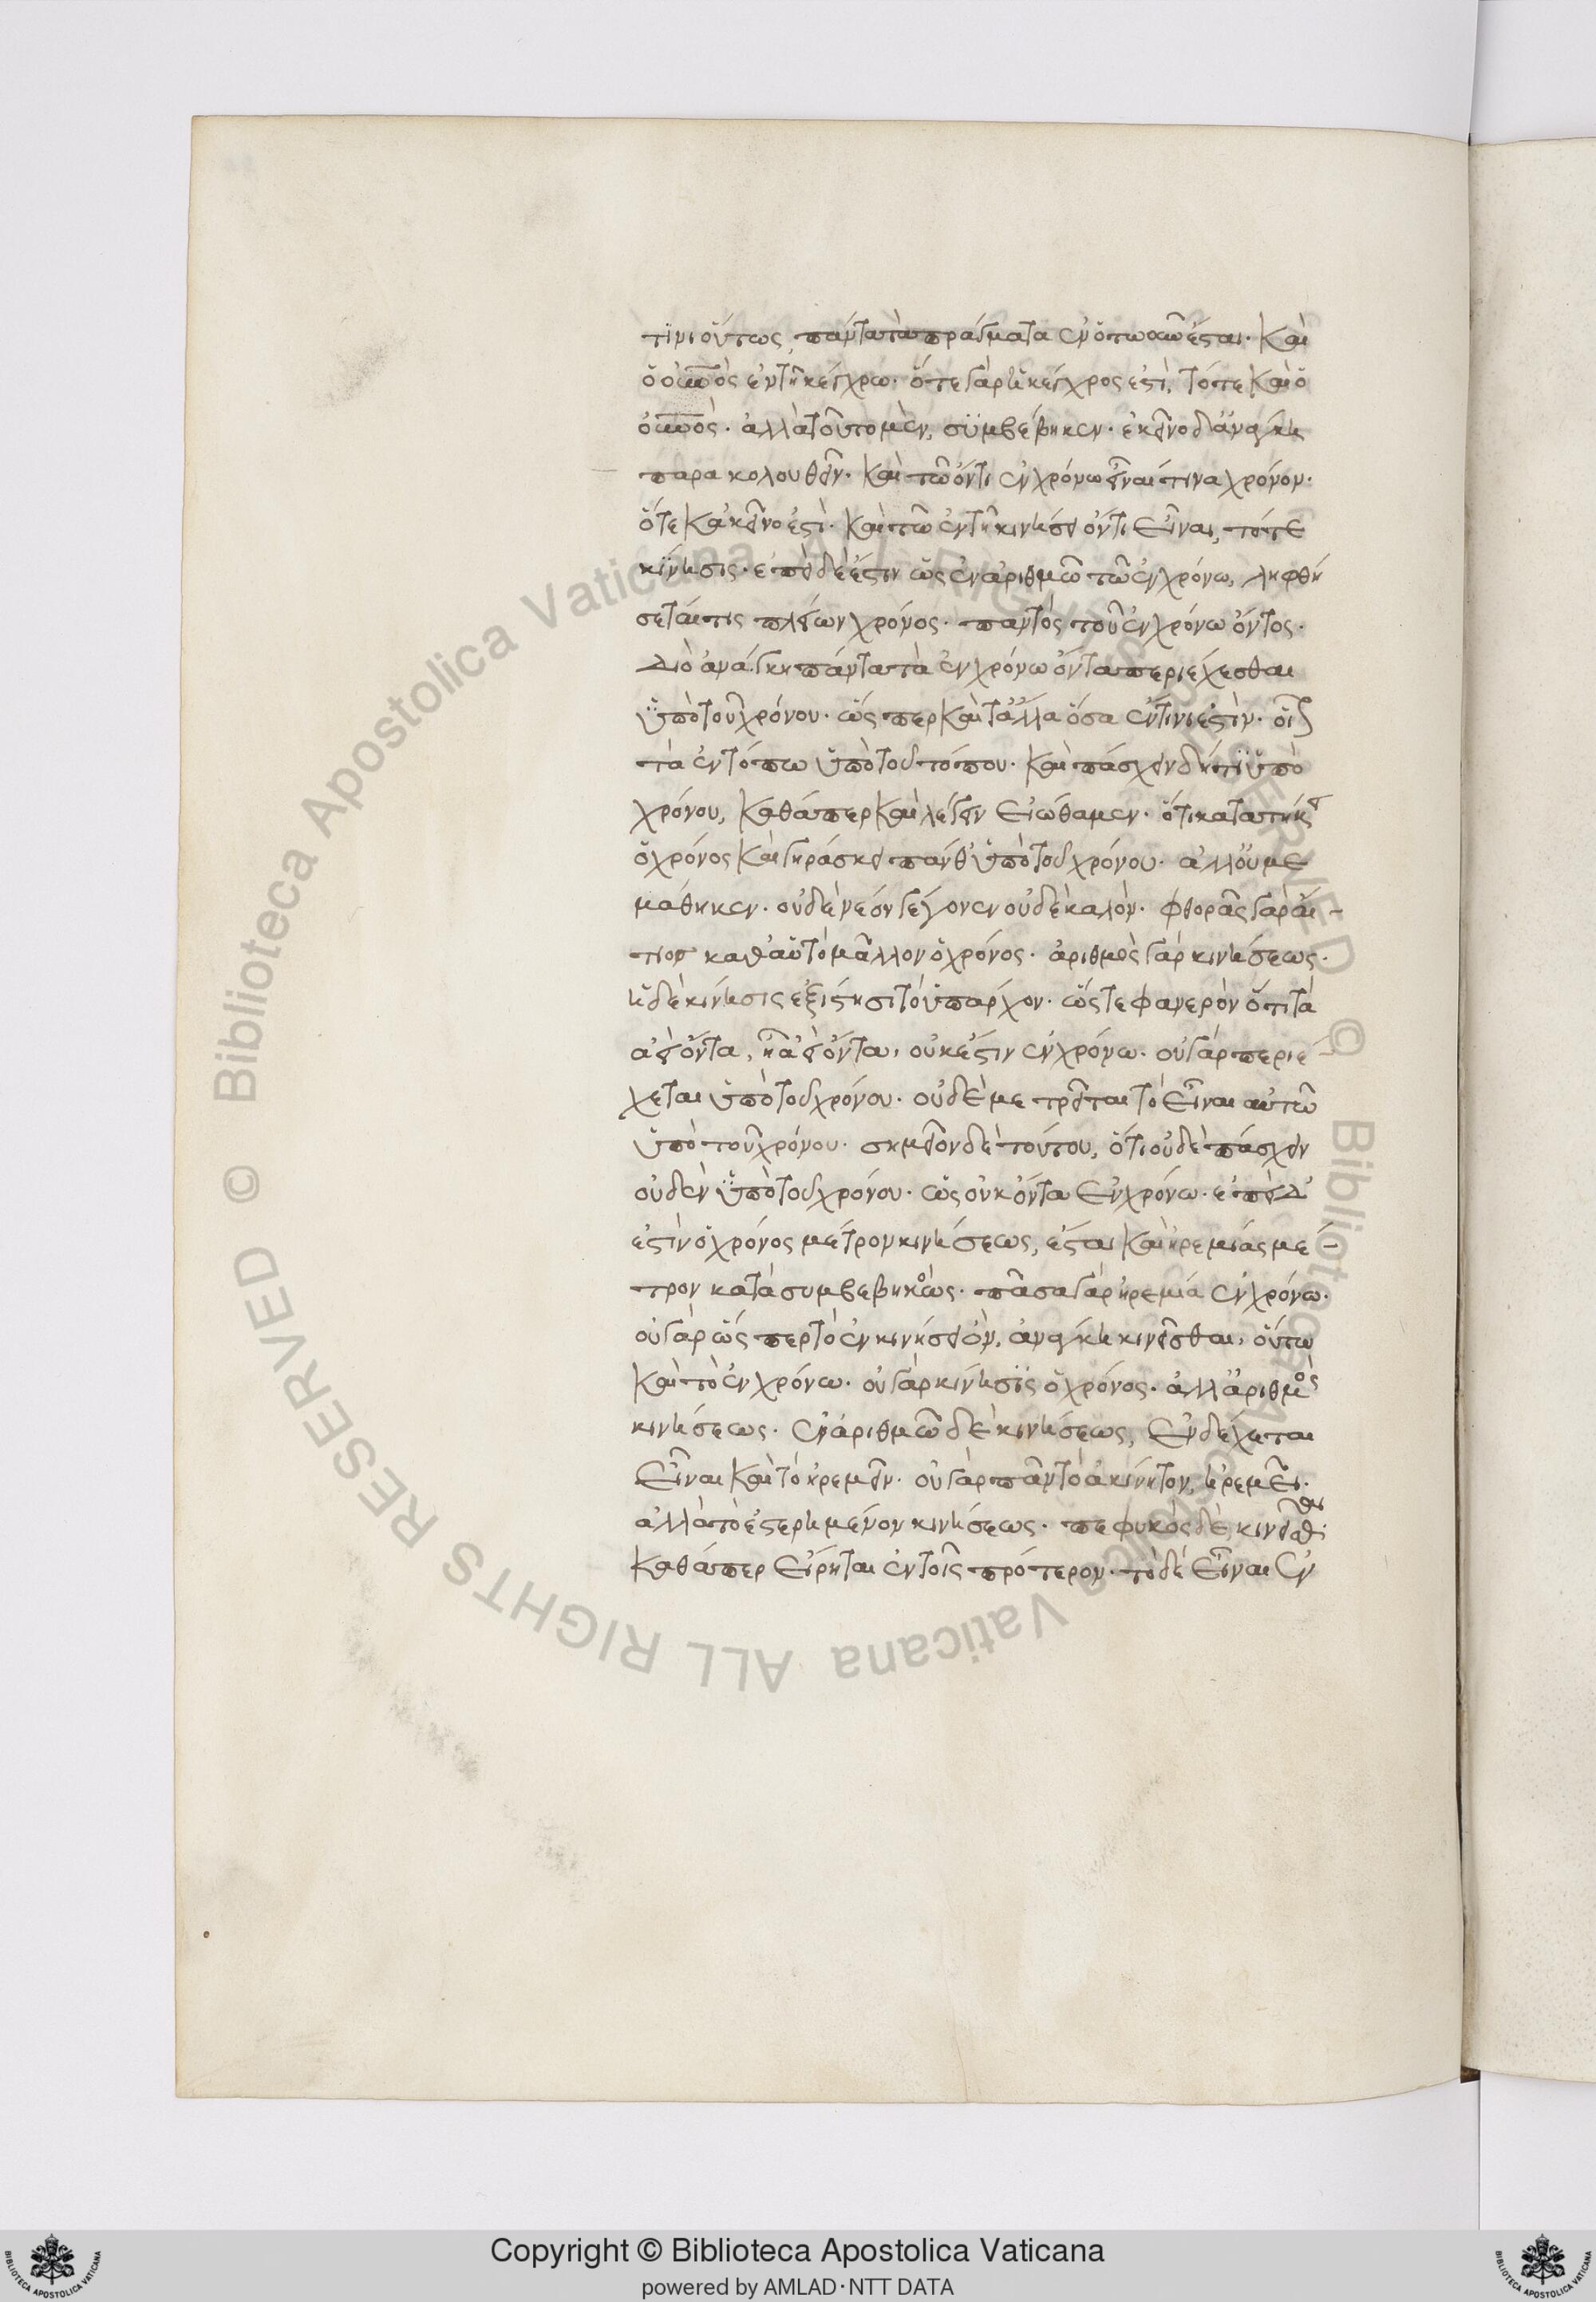 τινι οὕτως, πάντα τὰ πράγματα ἐν ὁτωοῦν ἔσται. Καὶ
ὁ οὐνὸς ἐν τῆ κέγχρω. ὅτε γὰρ ἡ κέγχρος ἐστὶ, τότε καὶ ὁ
οὐνὸς. ἀλλὰ τοῦτο μὲν, συμβέβηκεν. ἐκεῖνο δ' ἀνάγκη
παρακολουθεῖν. καὶ τῶ ὄντι ἐν χρόνω εἶναί τινα χρόνον.
ὅτε κἀκεῖνο ἐστὶ. καὶ τῶ ἐν τῆ κινήσει ὄντι εἶναι, τότε
κίνησις. ἐπεὶ δέ ἐστιν ὡς ἐν ἀριθμῶ τῶ ἐν χρόνω, ληφθή
σεταί τις πλείων χρόνος. παντὸς τοῦ ἐν χρόνω ὄντος.
Διὸ ἀνάγκη πάντα τὰ ἐν χρόνω ὄντα περιέχεσθαι
ὑπὸ τοῦ χρόνου. ὥσπερ καὶ τἄλλα ὅσα ἔν τινι ἐστὶν. οἷ
τὰ ἐν τόπω ὑπὸ τοῦ τόπου. καὶ πάσχειν δή τι ὑπὸ
χρόνου, καθάπερ καὶ λέγειν εἰώθαμεν. ὅτι κατατήκει
ὁ χρόνος καὶ γηράσκει πάνθ' ὑπὸ τοῦ χρόνου. ἀλλ' οὐ με
μάθηκεν. οὐδὲ νέον γέγονεν οὐδὲ καλὸν. φθορᾶς γὰρ αἴ-
τιος καθ' αὑτὸ μᾶλλον ὁ χρόνος. ἀριθμὸς γὰρ κινήσεως.
ἡ δὲ κίνησις ἐξίστησι τὸ ὑπάρχον. ὥστε φανερὸν ὅτι τὰ
ἀεὶ ὄντα, ἧ ἀεὶ ὄντα, οὐκ ἔστιν ἐν χρόνω. οὐ γὰρ περιέ
χεται ὑπὸ τοῦ χρόνου. οὐδὲ μετρεῖται τὸ εἶναι αὐτῶν
ὑπὸ τοῦ χρόνου. σημεῖον δὲ τούτου, ὅτι οὐδὲ πάσχειν
οὐδὲν ὑπὸ τοῦ χρόνου. ὡς οὐκ ὄντα ἐν χρόνω. ἐπεὶ δ'
ἐστὶν ὁ χρόνος μέτρον κινήσεως, ἔσται καὶ ἠρεμίας μέ-
τρον κατὰ συμβεβηκὸς. πᾶσα γὰρ ἠρεμία ἐν χρόνω.
οὐ γὰρ ὥσπερ τὸ ἐν κινήσει ὂν, ἀνάγκη κινεῖσθαι, οὕτω
καὶ τὸ ἐν χρόνω. οὐ γὰρ κίνησις ὁ χρόνος. ἀλλ' ἀριθμὸς
κινήσεως. ἐν ἀριθμῶ δὲ κινήσεως, ἐνδέχεται
εἶναι καὶ τὸ ἠρεμεῖν. οὐ γὰρ πᾶν τὸ ἀκίνητον, ἠρεμεῖ.
ἀλλὰ τὸ ἐστερημένον κινήσεως. πεφυκὸς δὲ κινεῖσθαι.
καθάπερ εἴρηται ἐν τοῖς πρότερον. τὸ δὲ εἶναι ἐν